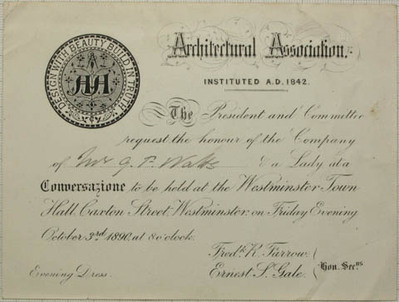 DESIGN WITH BEAUTY BUILD IN TRUTH
AA
Architectural Association.
INSTITUTED A.D. 1842.
The President and Committee
request the honour of the Company
of Mr G. P. Watts & a Lady at a
Conversazione to be held at the Westminster Town
Hall Caxton Street, Westminster, on Friday Evening
October 3rd 1890, at 8 o'clock.
Fredk. R. Farrow.
Ernest S. Gale.
Hon. Secrs.
Evening Dress.